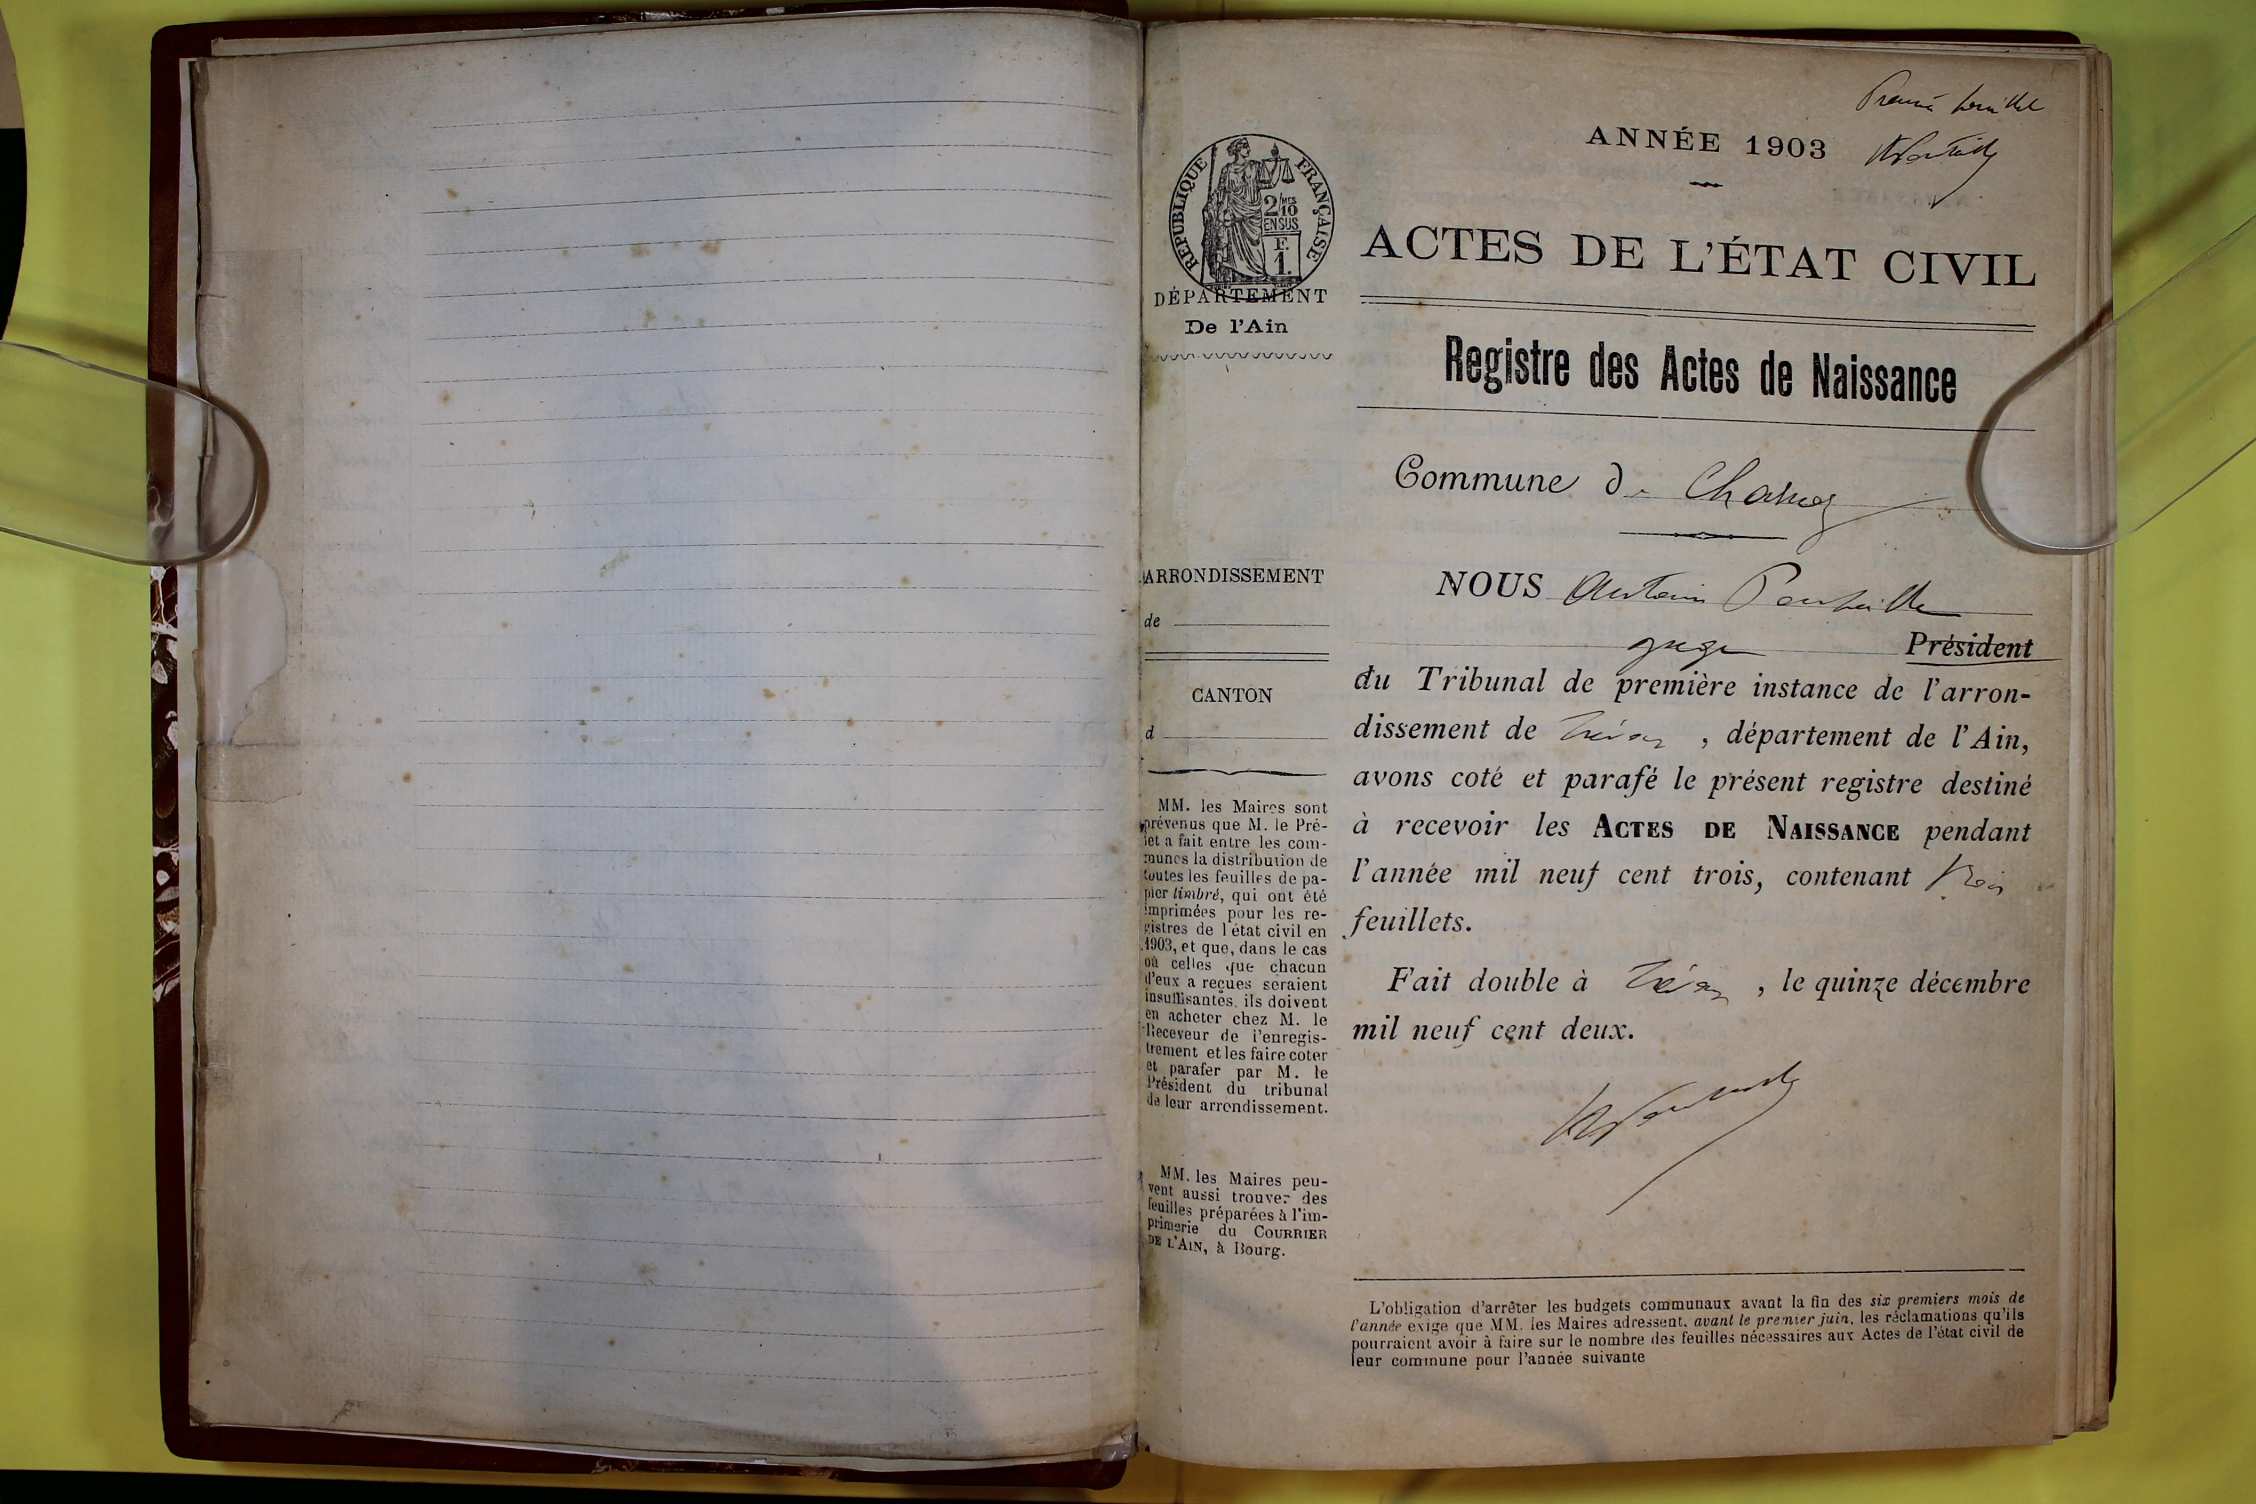 Premier feuillet
ANNÉE 1903
ACTES DE L'ÉTAT CIVIL
RÉPUBLIQUE FRANÇAISE
2/10
MES
EN SUS
F.
1.
DÉPARTEMENT
De l'Ain
Registre des Actes de Naissance
Commune de
ARRONDISSEMENT
de
CANTON
d
MM. les Maires sont
prévenus que M. le Pré-
fet a fait entre les com-
munes la distribution de
toutes les feuilles de pa-
pier timbré, qui ont été
imprimées pour les re-
gistres de l'état civil en
1903, et que, dans le cas
où celles que chacun
d'eux a reçues seraient
insuffisantes, ils doivent
en acheter chez M. le
Receveur de l'enregis-
trement et les faire coter
et parafer par M. le
Président du tribunal
de leur arrondissement.
MM. les Maires peu-
vent aussi trouver des
feuilles préparées à l'im-
primerie du COURRIER
DE L'AIN, à Bourg.
NOUS Antoine
juge Président
du Tribunal de première instance de l'arron-
dissement de Trévoux, département de l'Ain,
avons coté et parafé le présent registre destiné
à recevoir les ACTES DE NAISSANCE pendant
l'année mil neuf cent trois, contenant trois
feuillets.
Fait double à Trévoux, le quinze décembre
mil neuf cent deux.
L'obligation d'arrêter les budgets communaux avant la fin des six premiers mois de
l'année exige que MM. les Maires adressent, avant le premier juin, les réclamations qu'ils
pourraient avoir à faire sur le nombre des feuilles nécessaires aux Actes de l'état civil de
leur commune pour l'année suivante